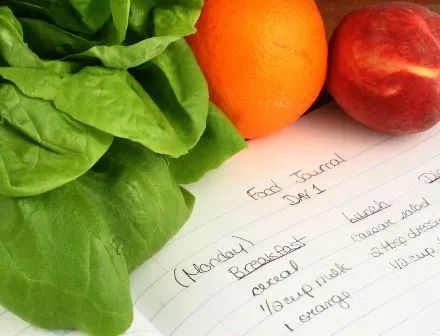 Food Journal
DAY 1
(Monday)
Breakfast
cereal
1/2 cup milk
1 orange
Lunch
caesar salad
2 tbsp dress
1/2 cup
Di